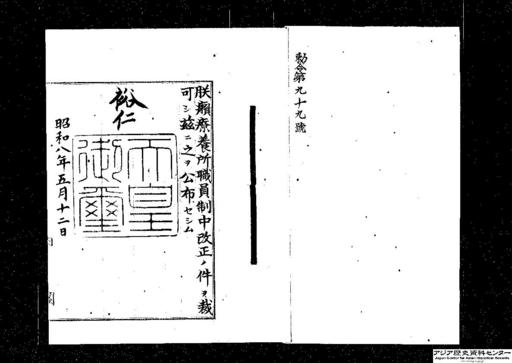 勅令第九十九號
朕癩療養所職員制中改正ノ件ヲ裁
可シ茲ニ之ヲ公布セシム
裕仁
天皇
御璽
昭和八年五月十二日
アジア歴史資料センター
Japan Center for Asian Historical Records